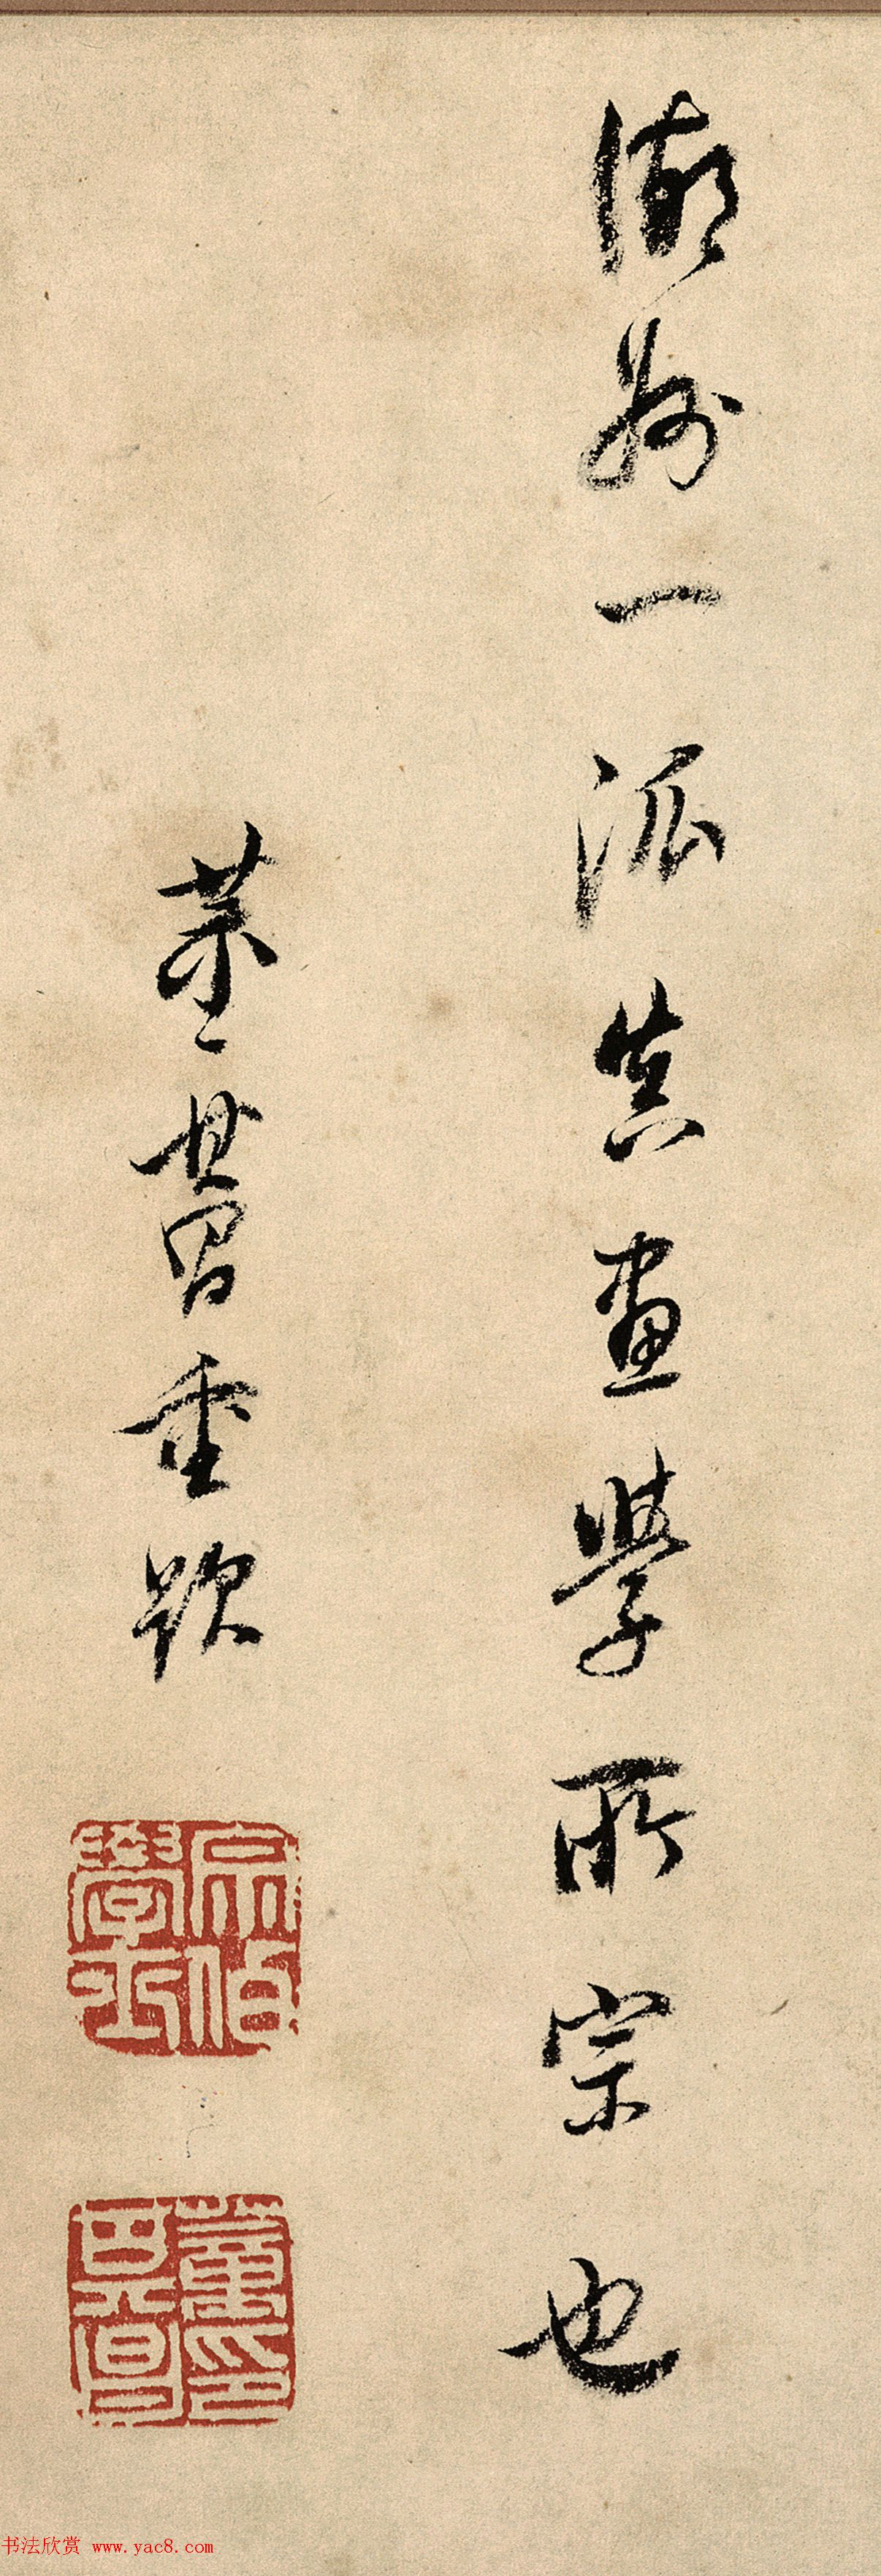 湖州一派真画學所宗也
董其昌重題
宗伯學士
董其昌印
书法欣赏 www.yac8.com